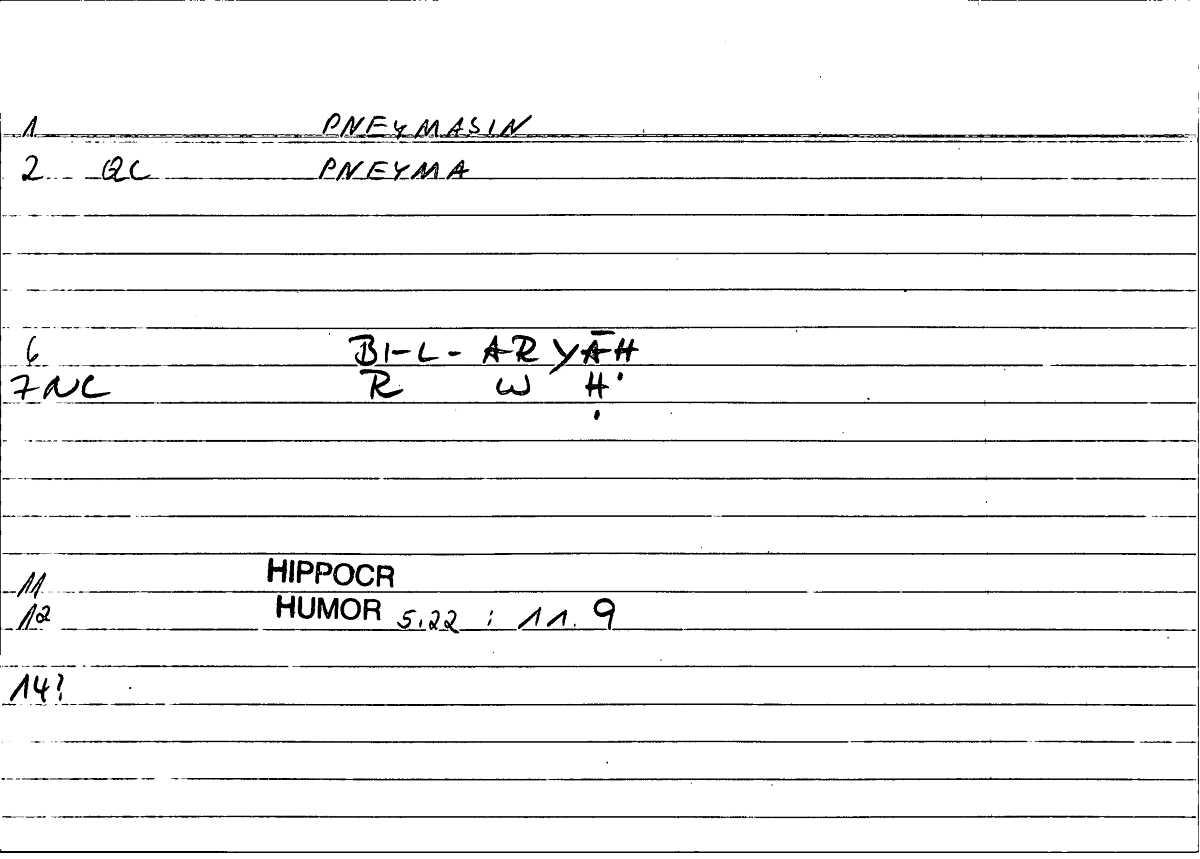 1 PNEYMASIN
2 QC PNEYMA
6 BI-L-ARYĀḤ
7 NC R W Ḥ
11 HIPPOCR
12 HUMOR 5.22 : 11.9
14?